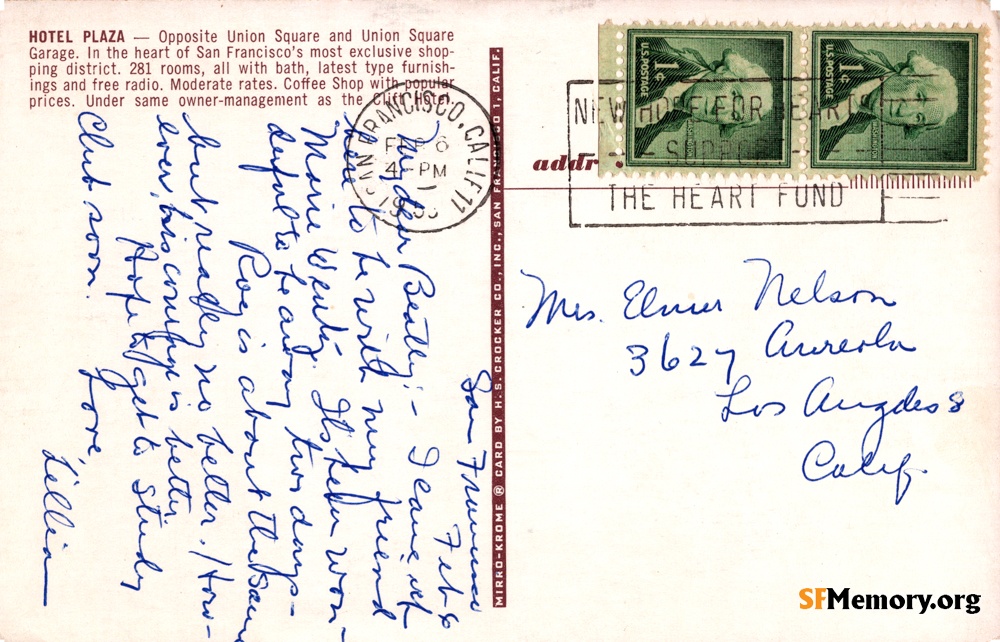 HOTEL PLAZA — Opposite Union Square and Union Square
Garage. In the heart of San Francisco's most exclusive shop-
ping district. 281 rooms, all with bath, latest type furnish-
ings and free radio. Moderate rates. Coffee Shop with popular
prices. Under same owner-management as the Clift Hotel.
San Francisco
Feb 6
My dear Beatty:- I came up
here to be with my friend
Marie Weitz. It's been won-
derful to be away two days-
Roy is about the same
but really no better. How-
ever, his courage is better
Hope to get to Study
Club soon.
Love,
Lillian
MIRRO-KROME ® CARD BY H. S. CROCKER CO., INC., SAN FRANCISCO 1, CALIF.
SAN FRANCISCO, CALIF. 11
FEB 6
4 - PM
addr
U.S. POSTAGE
1¢
U.S. POSTAGE
1¢
NEW HOPE FOR HEARTS
SUPPORT
THE HEART FUND
Mrs. Elmer Nelson
3627 Aureola
Los Angeles 8
Calif.
SFMemory.org